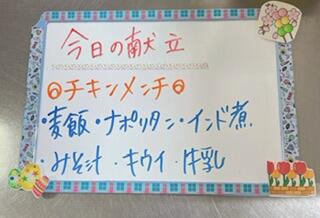 今日の献立
チキンメンチ
・麦飯・ナポリタン・インド煮
・みそ汁・キウイ・牛乳